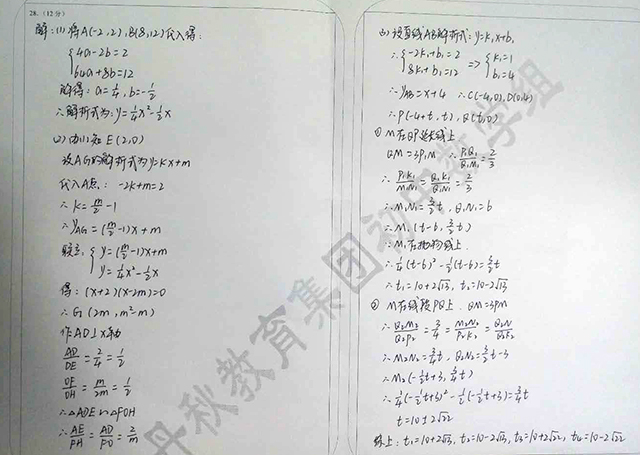 28. (12分)
解:(1)将A(-2,2),B(8,12)代入得:
{4a-2b=2
64a+8b=12
解得:a=1/4,b=-1/2
∴解析式为:y=1/4x²-1/2x
(2)由(1)知E(2,0)
设AG的解析式为y=kx+m
代入A点:-2k+m=2
∴k=m/2-1
∴yAG=(m/2-1)x+m
联立{y=(m/2-1)x+m
y=1/4x²-1/2x
得:(x+2)(x-2m)=0
∴G(2m,m²-m)
作AD⊥x轴
AD/DE=2/4=1/2
OF/OH=m/2m=1/2
∴△ADE∽△FOH
∴AE/FH=AD/FO=2/m
(3)设直线AB解析式:y=k₁x+b₁
∴{-2k₁+b₁=2
8k₁+b₁=12 ⇒ {k₁=1
b₁=4
∴yAB=x+4 ∴C(-4,0),D(0,4)
∴P(-4+t,t),Q(t,0)
① M在QP延长线上
QM=3PM ∴P₁Q₁/Q₁M₁=2/3
∴P₁K₁/M₁N₁=Q₁K₁/Q₁N₁=2/3
∴M₁N₁=3/2t,Q₁N₁=6
∴M₁(t-6,3/2t)
∴M₁在抛物线上
∴1/4(t-6)²-1/2(t-6)=3/2t
∴t₁=10+2√13,t₂=10-2√13
② M在线段PQ上,QM=3PM
∴Q₂M₂/Q₂P₂=3/4=M₂N₂/P₂K₂=Q₂N₂/Q₂K₂
∴M₂N₂=3/4t,Q₂N₂=3
∴1/4(-1/2t+3)²-1/2(-1/2t+3)=3/4t
t=10±2√22
综上:t₁=10+2√13,t₂=10-2√13,t₃=10+2√22,t₄=10-2√22
丹秋教育集团初中教学组